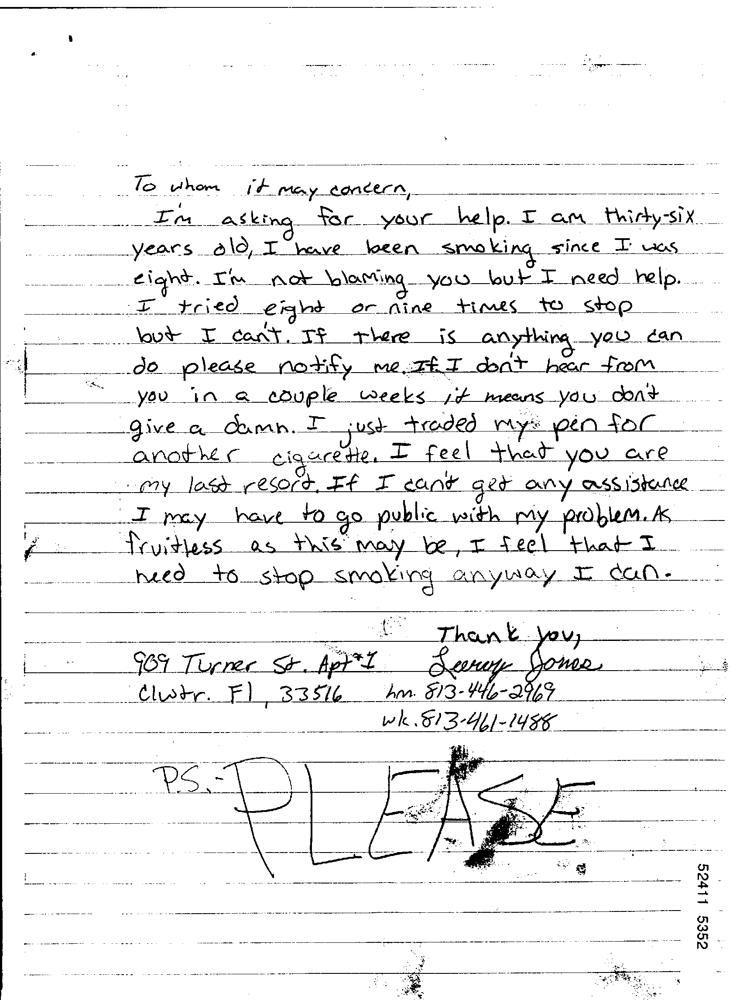 To whom it may concern,
I'm asking for your help. I am thirty-six
years old, I have been smoking since I was
eight. I'm not blaming you but I need help.
I tried eight or nine times to stop
but I can't. If there is anything you can
do please notify me. If I don't hear from
you in a couple weeks it means you don't
give a damn. I just traded my pen for
another cigarette. I feel that you are
my last resort. If I can't get any assistance
I may have to go public with my problem. As
fruitless as this may be, I feel that I
need to stop smoking anyway I can.
Thank you,
909 Turner St. Apt #1 Jones
Clwtr. Fl, 33516 hm. 813-446-2969
wk. 813-461-1488
P.S.- PLEASE
52411 5352